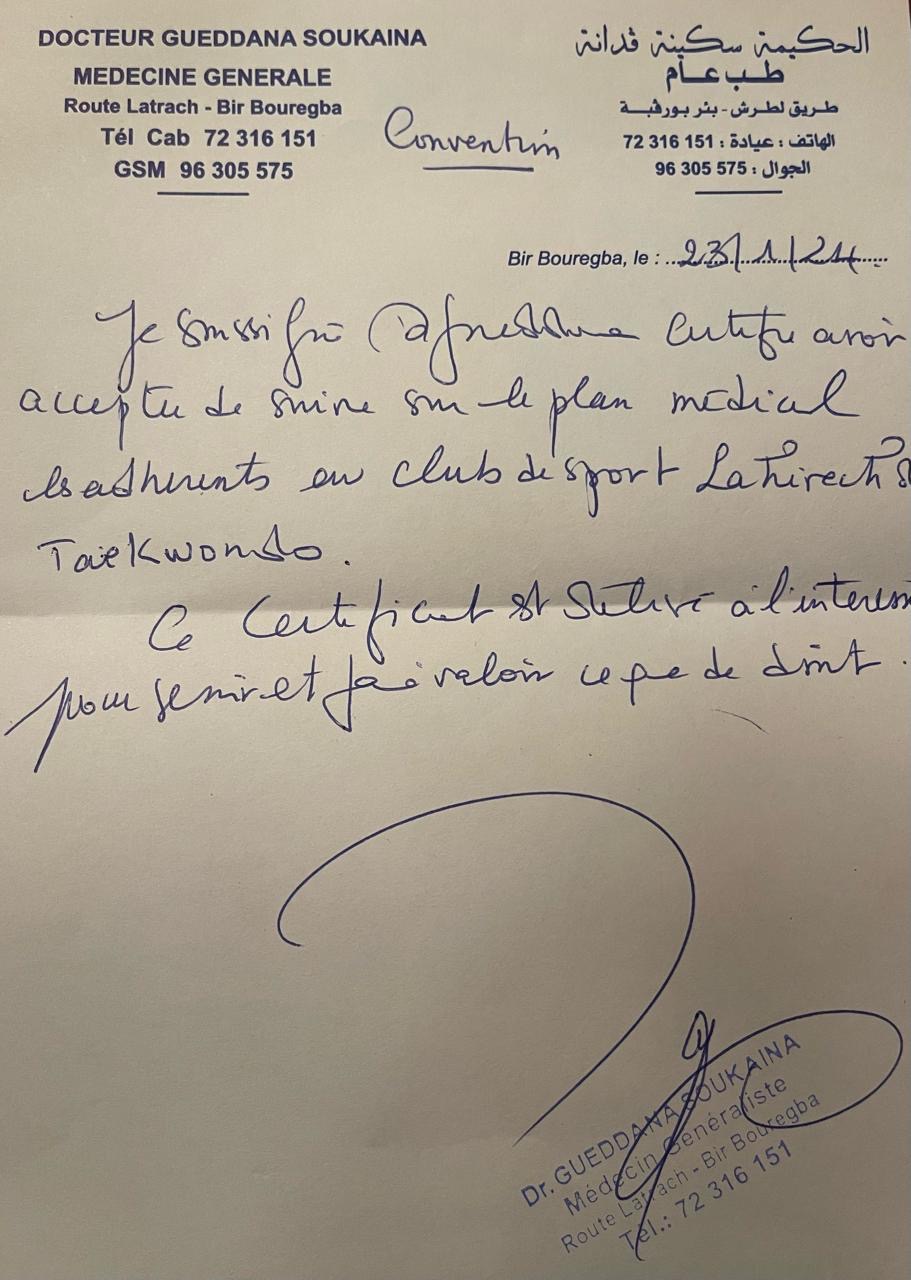 DOCTEUR GUEDDANA SOUKAINA
MEDECINE GENERALE
Route Latrach - Bir Bouregba
Tél Cab 72 316 151
GSM 96 305 575
الحكيمة سكينة قدانة
طب عام
طريق لطرش - بئر بورقبة
الهاتف : عيادة : 151 316 72
الجوال : 575 305 96
Convention
Bir Bouregba, le : 23/1/24
Je soussigné Certifie avoir
accepté de suivre sur le plan médical
les adhérents au club de sport
Taekwondo.
Ce Certificat est délivré à l'interess
pour servir et faire valoir ce que de droit.
Dr. GUEDDANA SOUKAINA
Médecin Généraliste
Route Latrach - Bir Bouregba
Tél.: 72 316 151